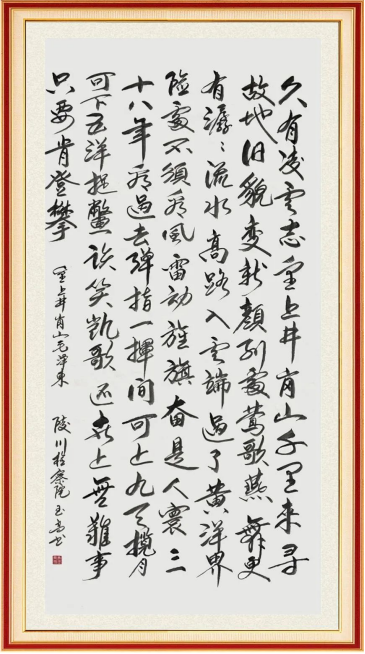 久有凌雲志重上井岗山千里来寻
故地旧貌变新颜到處莺歌燕舞更
有潺ミ流水高路入雲端過了黄洋界
險處不須看風雷動旌旗奋是人寰三
十八年過去彈指一揮间可上九天揽月
可下五洋捉鳖谈笑凯歌还世上無難事
只要肯登攀 重上井岗山毛泽东 陵川检察院玉书